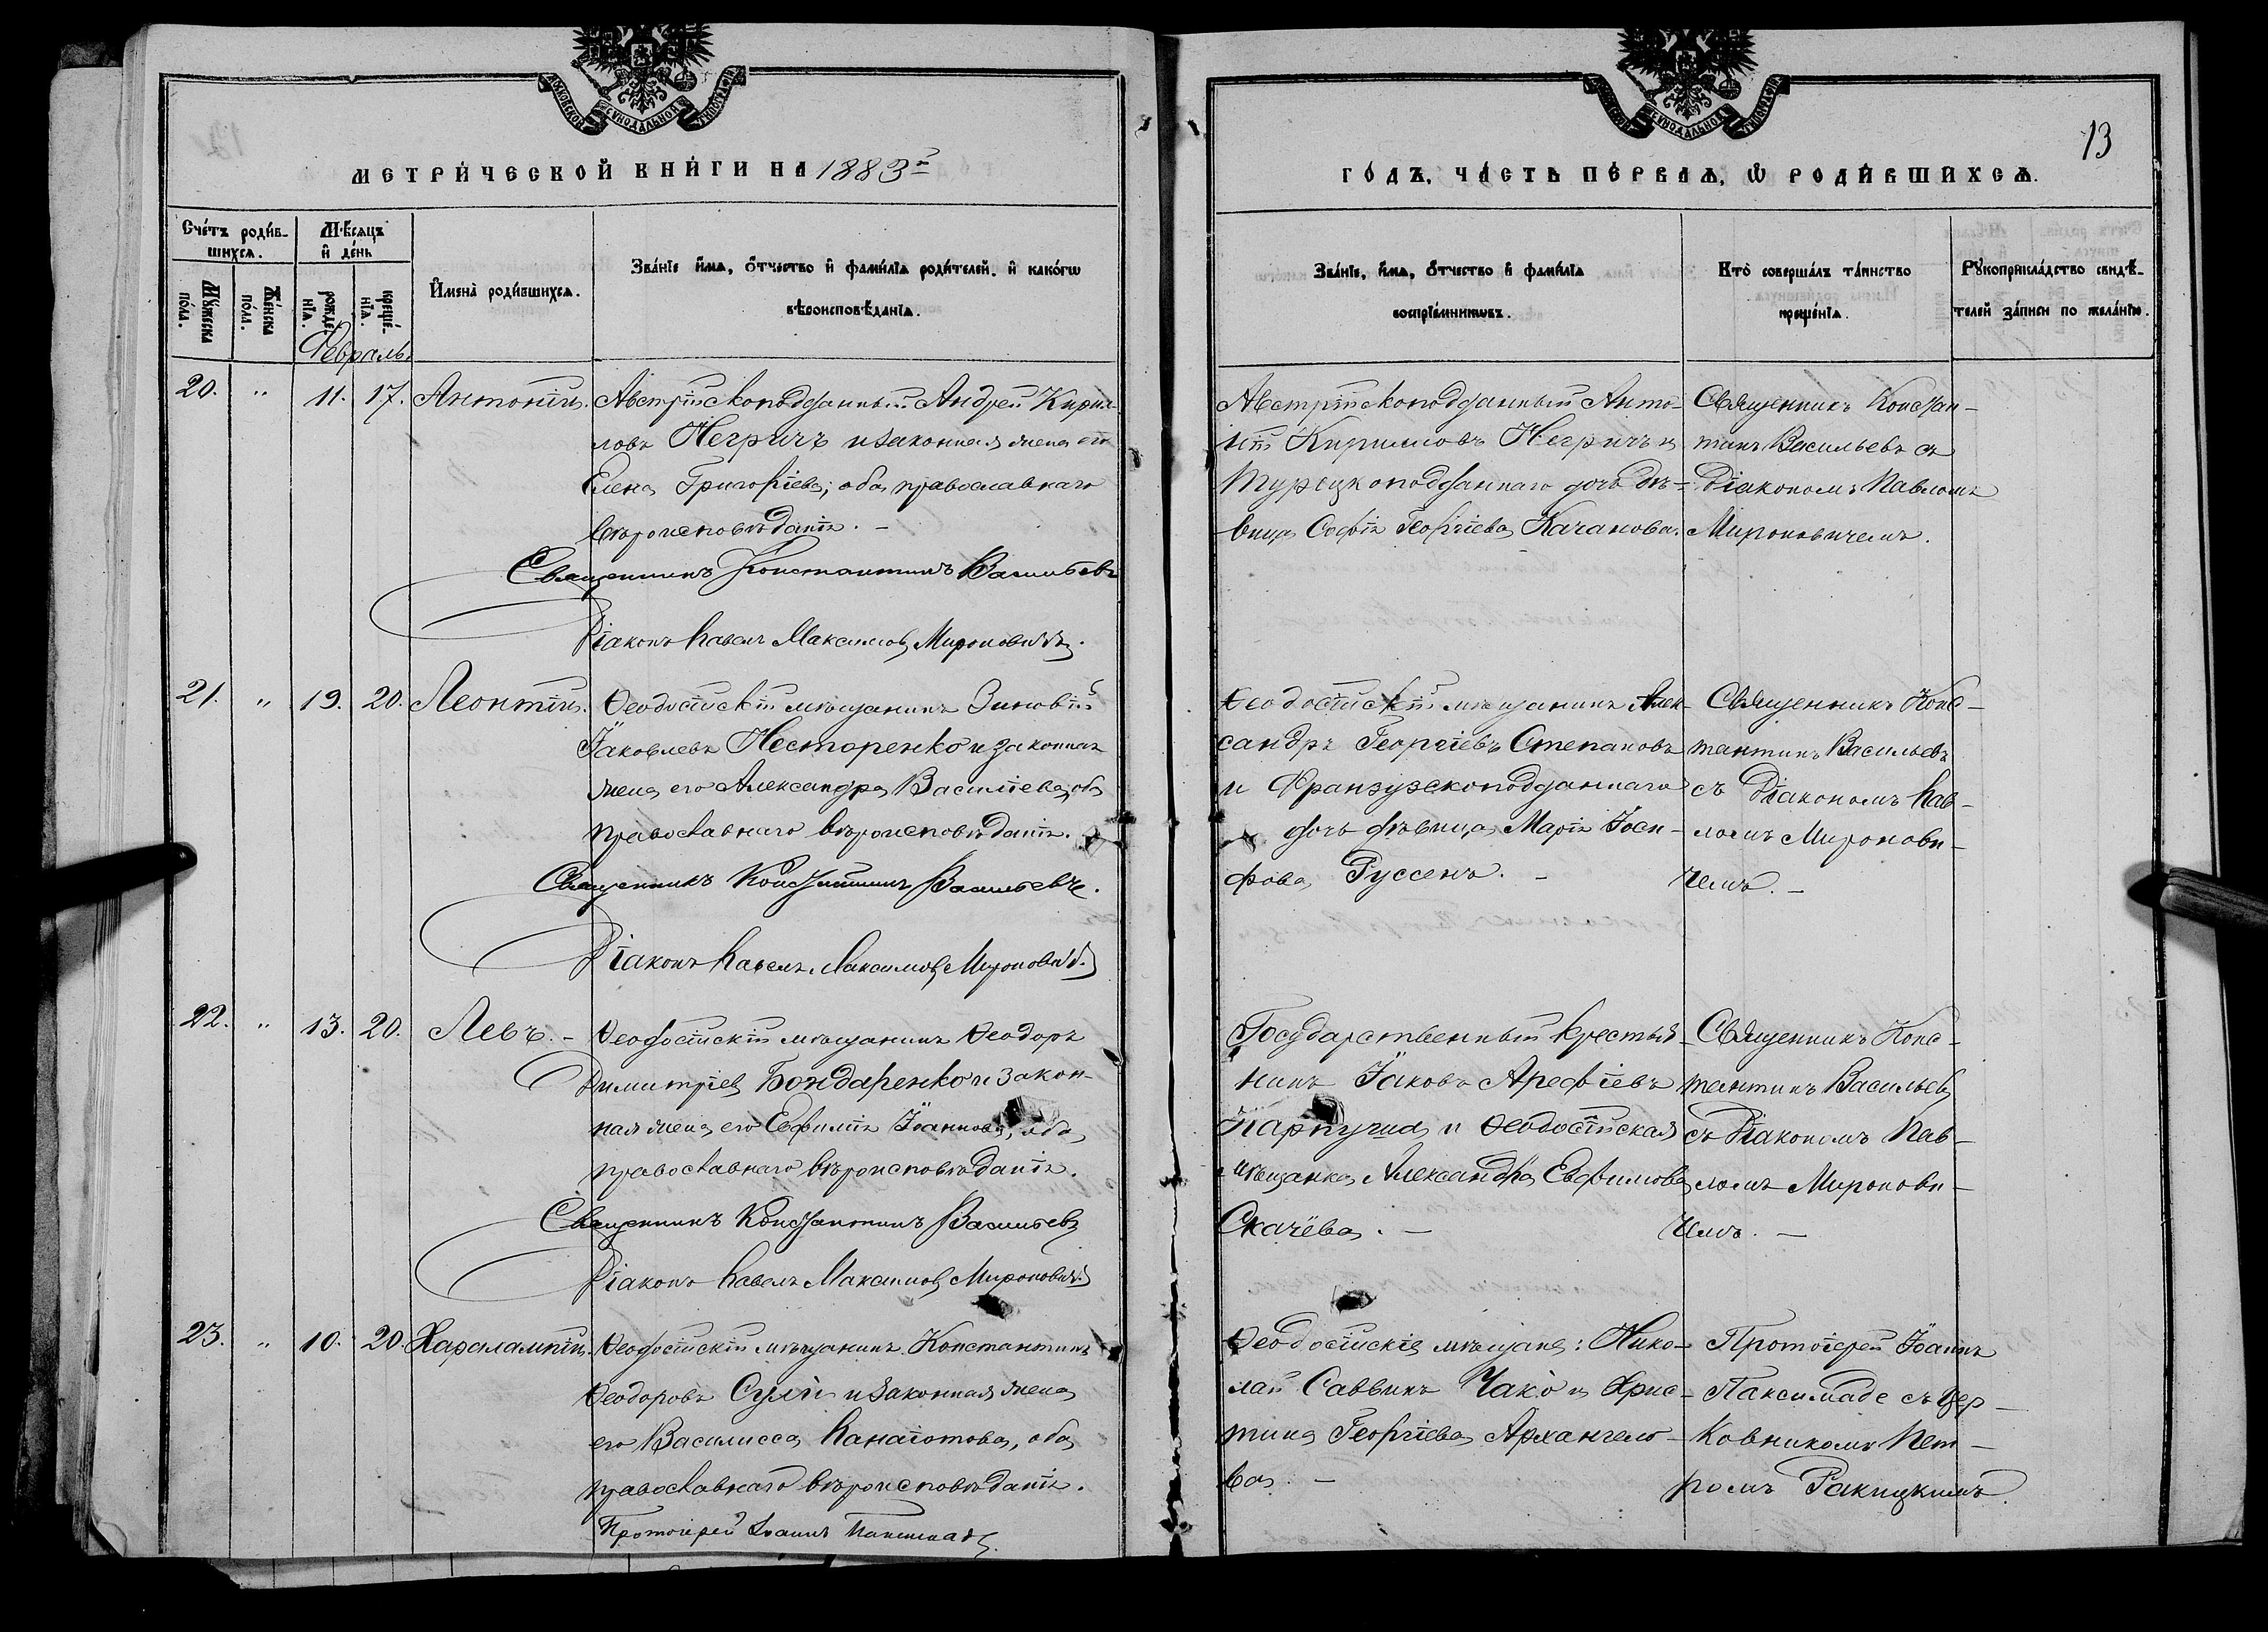 МОСКОВСКОЙ СѴНОДАЛЬНОЙ ТИПОГРАФІИ
МЕТРИ́ЧЕСКОЙ КНИ́ГИ НА 1883й
Сче́тъ роди́вшихсѧ.
Мѣ́сѧцъ и҆ де́нь
Мꙋ́жеска по́ла.
Же́нска по́ла.
рожде́нїѧ.
креще́нїѧ.
Февраль
И҆мена̀ роди́вшихсѧ.
Зва́нїе и҆́мѧ, ѻ҆́тчество и҆ фами́лїѧ роди́телей, и҆ како́гѡ
вѣроисповѣ́данїѧ.
20. " 11. 17. Антоній. Австрійскоподданный Андрей Кирил-
ловъ Негричъ и законная жена его
Елена Григоріева; оба православнаго
вѣроисповѣданія. –
Священникъ Константинъ Васильевъ
Діаконъ Павелъ Максимовъ Мироновичъ.
21. " 19. 20. Леонтій. Ѳеодосійскій мѣщанинъ Зиновій
Іаковлевъ Несторенко и законная
жена его Александра Василіева, оба
православнаго вѣроисповѣданія.
Священникъ Константинъ Васильевъ.
Діаконъ Павелъ Максимовъ Мироновичъ.
22. " 13. 20. Левъ. – Ѳеодосійскій мѣщанинъ Ѳеодоръ
Димитріевъ Бондаренко и закон-
ная жена его Евфимія Іоаннова, оба
православнаго вѣроисповѣданія.
Священникъ Константинъ Васильевъ
Діаконъ Павелъ Максимовъ Мироновичъ.
23. " 10. 20. Харалампій. Ѳеодосійскій мѣщанинъ Константинъ
Ѳеодоровъ Сули и законная жена
его Василисса Панаіотова, оба
православнаго вѣроисповѣданія.
Протоіерей Іоаннъ Паксимаде.
МОСКОВСКОЙ СѴНОДАЛЬНОЙ ТИПОГРАФІИ
13
ГО́ДЪ, ЧА́СТЬ ПЕ́РВАѦ, Ѡ҆ РОДИ́ВШИХСѦ.
Зва́нїе, и҆́мѧ, ѻ҆́тчество и҆ фами́лїѧ
воспрїе́мникѡвъ.
Кто̀ соверша́лъ та́инство
креще́нїѧ.
Рꙋкоприкла́дство свидѣ́-
телей за́писи по жела́нїю.
Австрійскоподданный Анто-
ній Кирилловъ Негричъ и
Турецкоподданнаго дочь дѣ-
вица Софія Георгіева Качанова.
Священникъ Констан-
тинъ Васильевъ съ
Діакономъ Павломъ
Мироновичемъ.
Ѳеодосійскій мѣщанинъ Алек-
сандръ Георгіевъ Степановъ
и Французскоподданнаго
дочь дѣвица Марія Іоси-
фова Руссенъ. –
Священникъ Конс-
тантинъ Васильевъ
съ Діакономъ Пав-
ломъ Миронови-
чемъ. –
Государственный крестья-
нинъ Іаковъ Арефіевъ
Карпуша и Ѳеодосійская
мѣщанка Александра Евфимова
Скачёва. –
Священникъ Конс-
тантинъ Васильевъ
съ Діакономъ Пав-
ломъ Миронови-
чемъ. –
Ѳеодосійскіе мѣщане: Нико-
лай Саввинъ Чако и Хрис-
тина Георгіева Архангело-
ва –
Протоіерей Іоаннъ
Паксимаде съ Цер-
ковникомъ Пет-
ромъ Ракицкимъ.